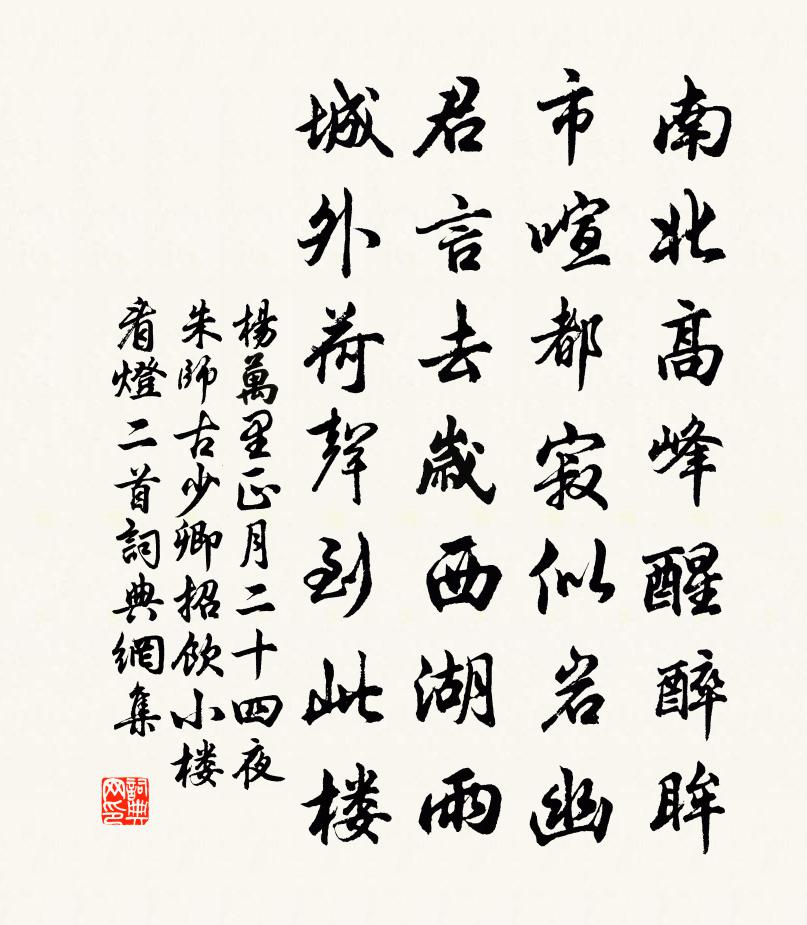 南北高峰醒醉眸
市喧都寂似岩幽
君言去歲西湖雨
城外荷聲到此楼
楊萬里正月二十四夜
朱師古少卿招飲小楼
看燈二首詞典網集
詞典网印